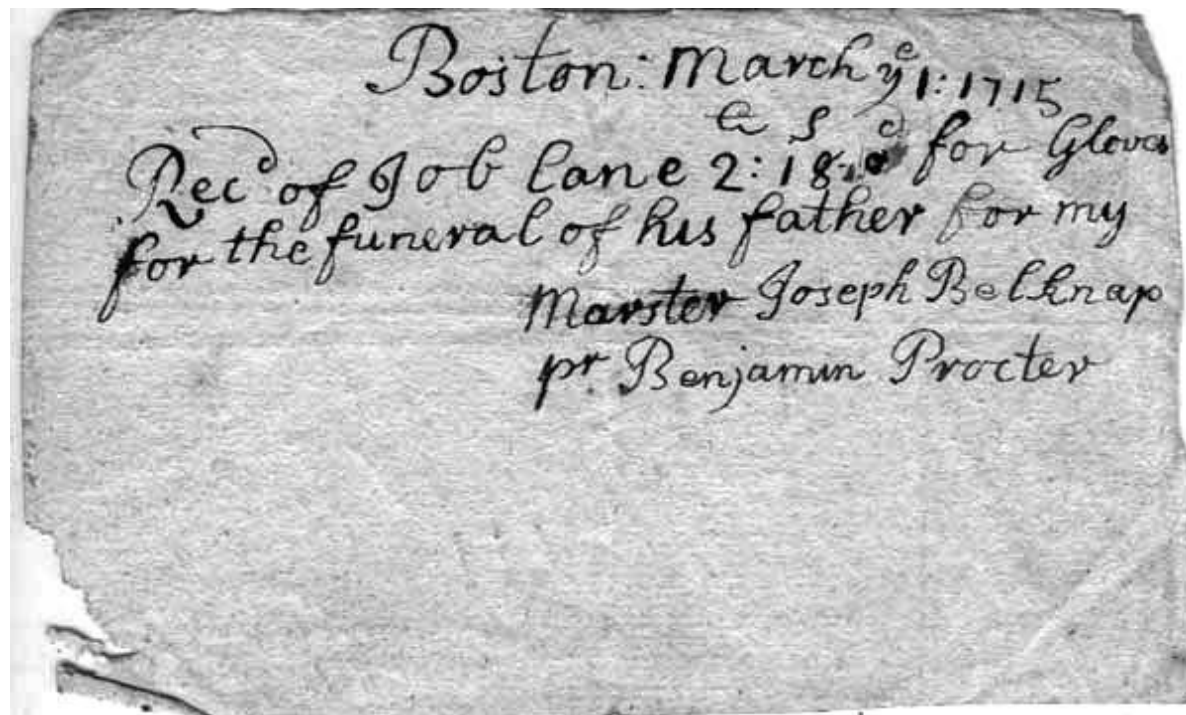 Boston: March yᵉ 1: 1715
Recᵈ of Job Lane 2: 18 for Gloves
for the funeral of his father for my
Marster Joseph Belknap
pr. Benjamin Procter